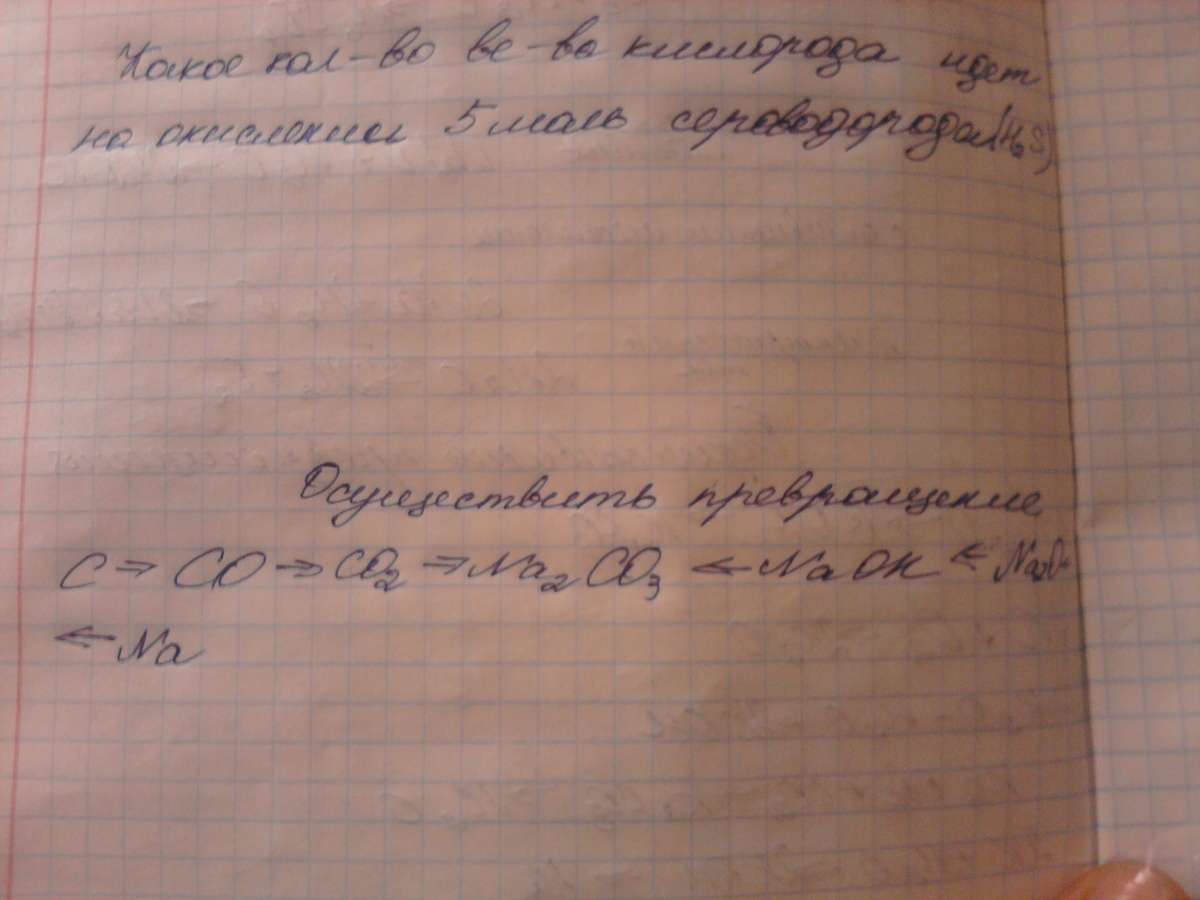 Какое кол-во ве-ва кислорода идет
на окисление 5 моль сероводорода (H₂S)
Осуществить превращение
C → CO → CO₂ → Na₂CO₃ ← NaOH ← Na₂O
← Na